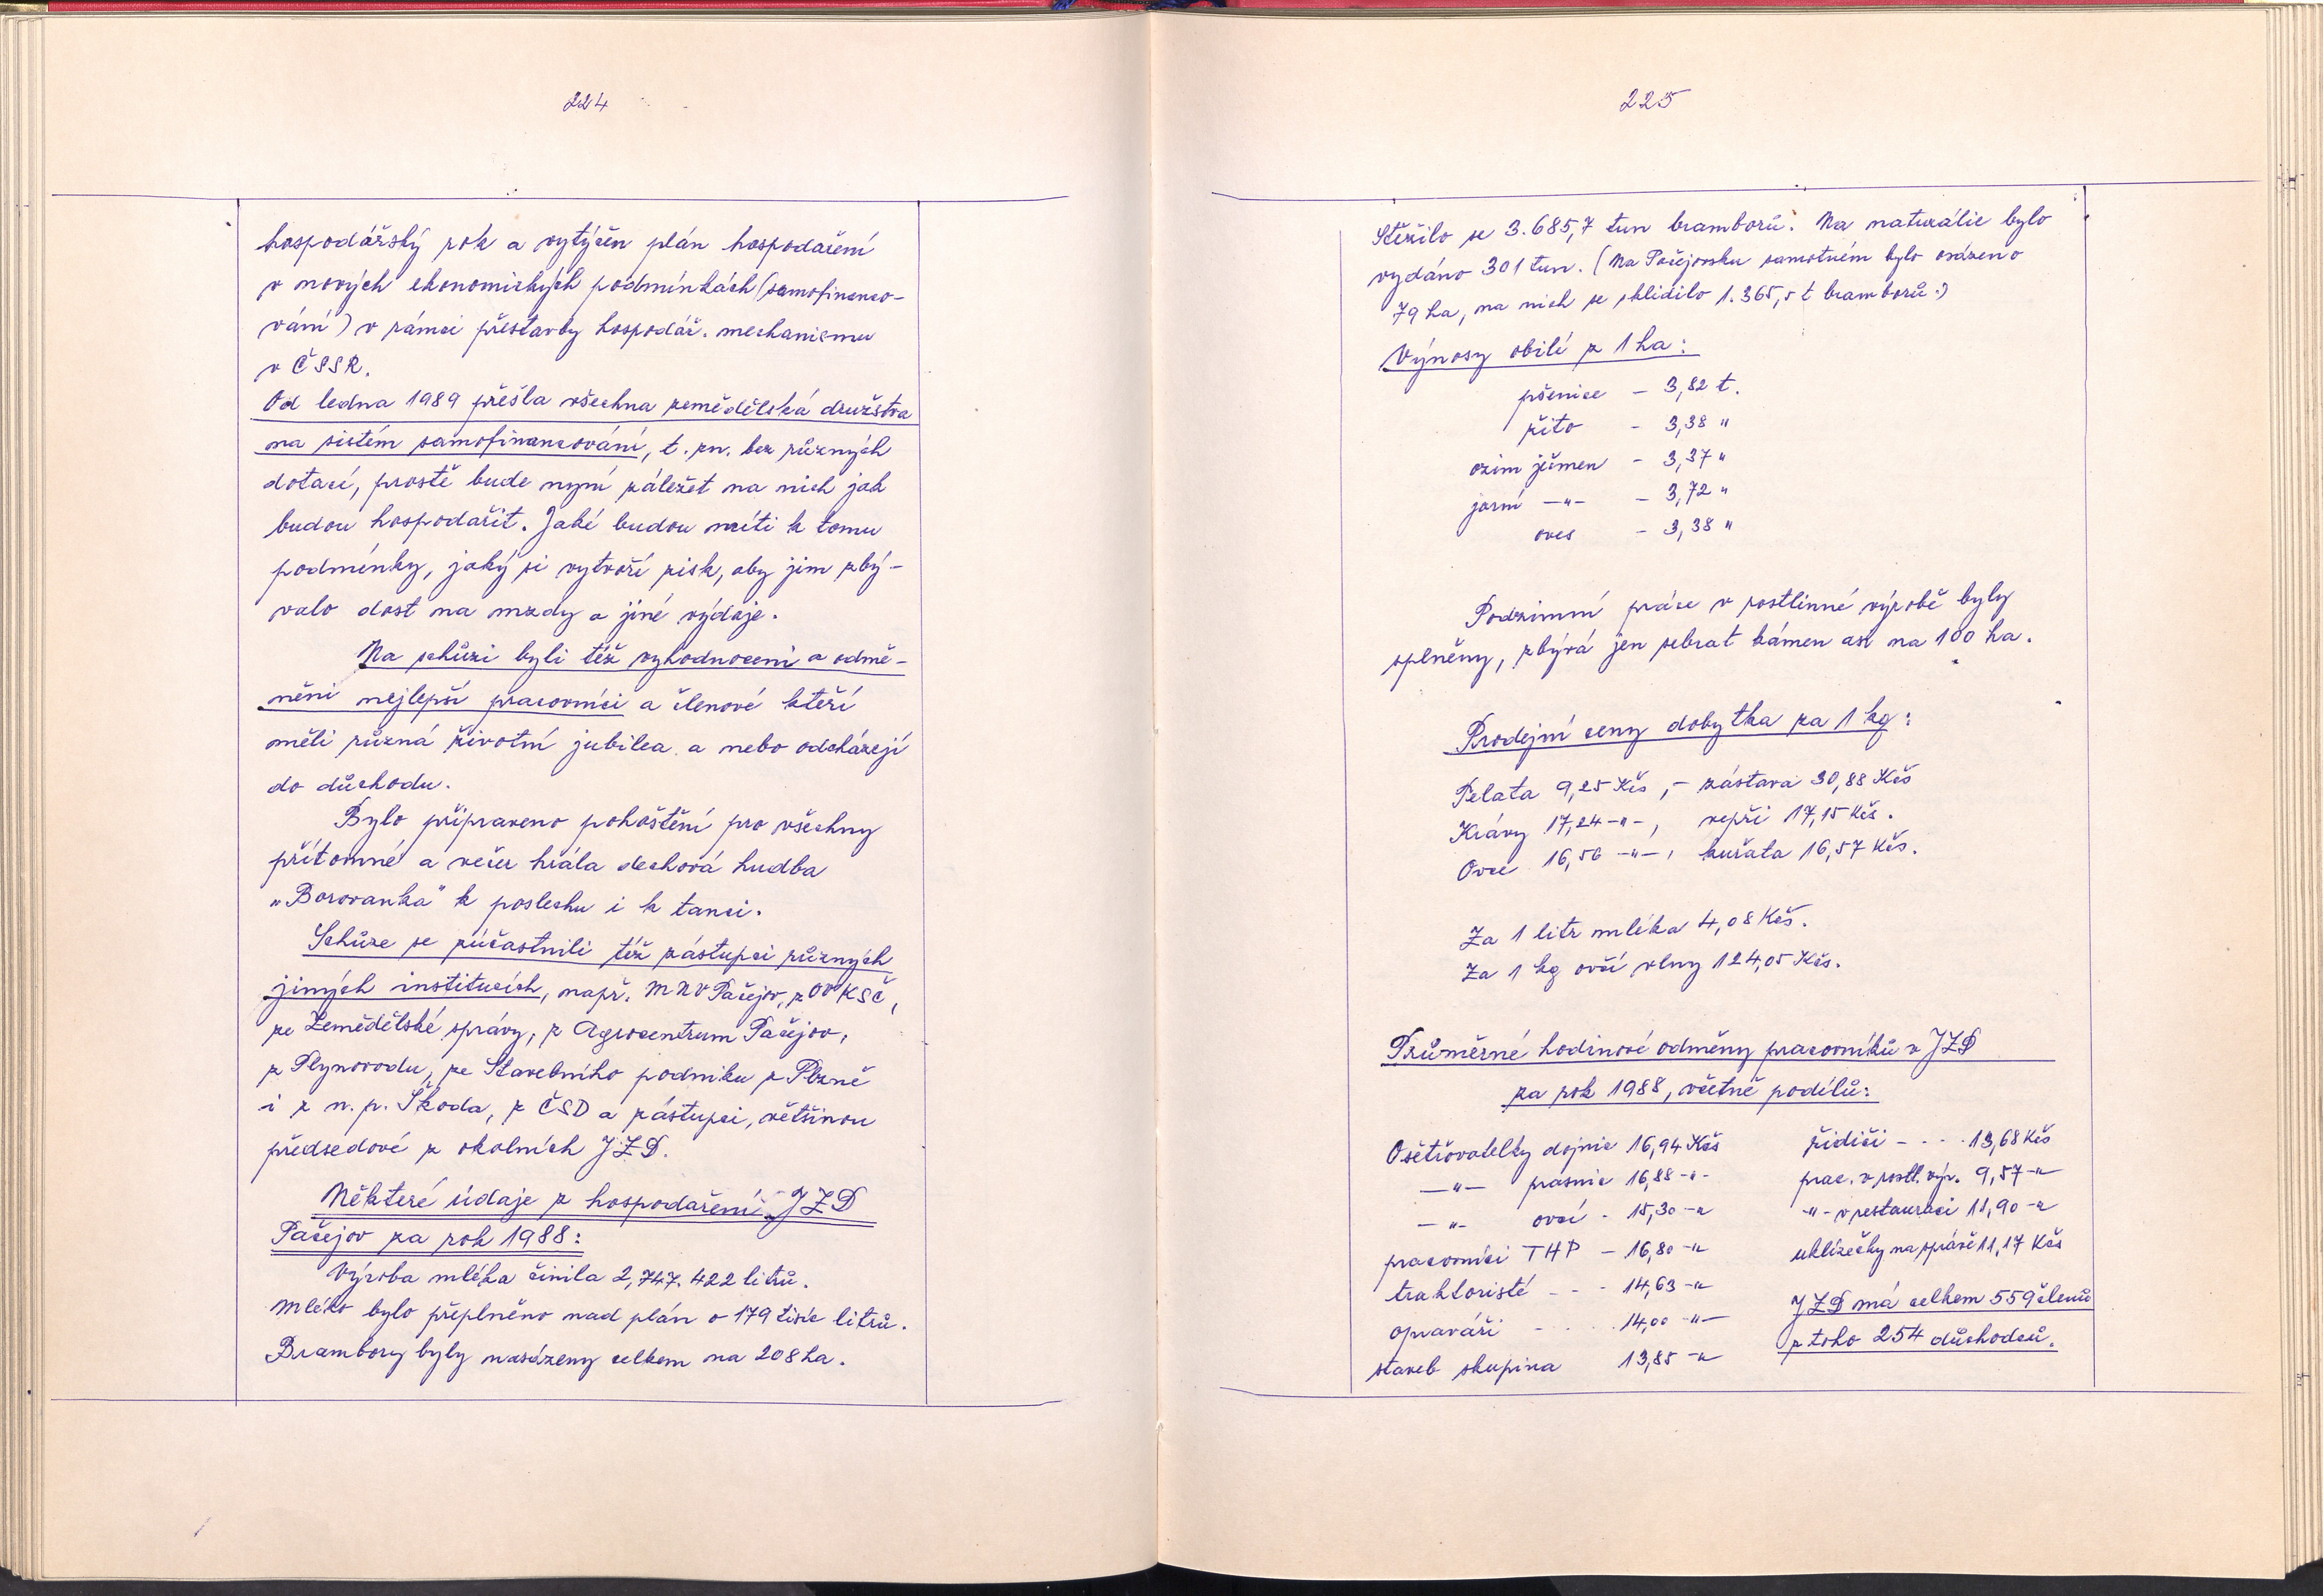 224
hospodářský rok a vytýčen plán hospodaření
v nových ekonomických podmínkách (samofinanco-
vání) v rámci přestavby hospodář. mechanismu
v ČSSR.
Od ledna 1989 přešla všechna zemědělská družstva
na sistém samofinancování, t. zn. bez různých
dotací, prostě bude nyní záležet na nich jak
budou hospodařit. Jaké budou míti k tomu
podmínky, jaký si vytvoří zisk, aby jim zbý-
valo dost na mzdy a jiné výdaje.
Na schůzi byli též vyhodnoceni a odmě-
něni nejlepší pracovníci a členové kteří
měli různá životní jubilea a nebo odcházejí
do důchodu.
Bylo připraveno pohoštění pro všechny
přítomné a večer hrála dechová hudba
„Borovanka" k poslechu i k tanci.
Schůze se zúčastnili též zástupci různých
jiných institucích, např. MNV Pačejov, z OV KSČ,
ze Zemědělské správy, z Agrocentrum Pačejov,
z Plynovodu, ze Stavebního podniku z Plzně
i z n. p. Škoda, z ČSD a zástupci, většinou
předsedové z okolních JZD.
Některé údaje z hospodaření JZD
Pačejov za rok 1988:
Výroba mléka činila 2,747.422 litrů.
Mléko bylo přeplněno nad plán o 179 tisíc litrů.
Brambory byly nasázeny celkem na 208 ha.
225
Stěžilo se 3.685,7 tun bramborů. Na naturálie bylo
vydáno 301 tun. (Na Pačejovsku samotném bylo osázeno
79 ha, na nich se sklidilo 1.365,5 t bramborů.)
Výnosy obilí z 1 ha:
pšenice - 3,82 t.
žito - 3,38 "
ozim ječmen - 3,37 "
jarní -"- - 3,72 "
oves - 3,38 "
Podzimní práce v rostlinné výrobě byly
splněny, zbývá jen sebrat kámen asi na 100 ha.
Prodejní ceny dobytka za 1 kg:
Telata 9,25 Kčs, - zástava 30,88 Kčs
Krávy 17,24 -"-, vepři 17,15 Kčs.
Ovce 16,56 -"-, kuřata 16,57 Kčs.
Za 1 litr mléka 4,08 Kčs.
Za 1 kg ovčí vlny 124,05 Kčs.
Průměrné hodinové odměny pracovníků v JZD
za rok 1988, včetně podílů:
Ošetřovatelky dojnic 16,94 Kčs řidiči - - - 13,68 Kčs
-"- prasnic 16,88 -"- prac. v rostl. výr. 9,57 -"
-"- ovcí - 15,30 -" -"- v restauraci 11,90 -"
pracovníci THP - 16,80 -" uklízečky na správě 11,17 Kčs
traktoristé - - - 14,63 -" JZD má celkem 559 členů
opraváři - - - 14,00 -"- z toho 254 důchodců.
staveb skupina 13,85 -"